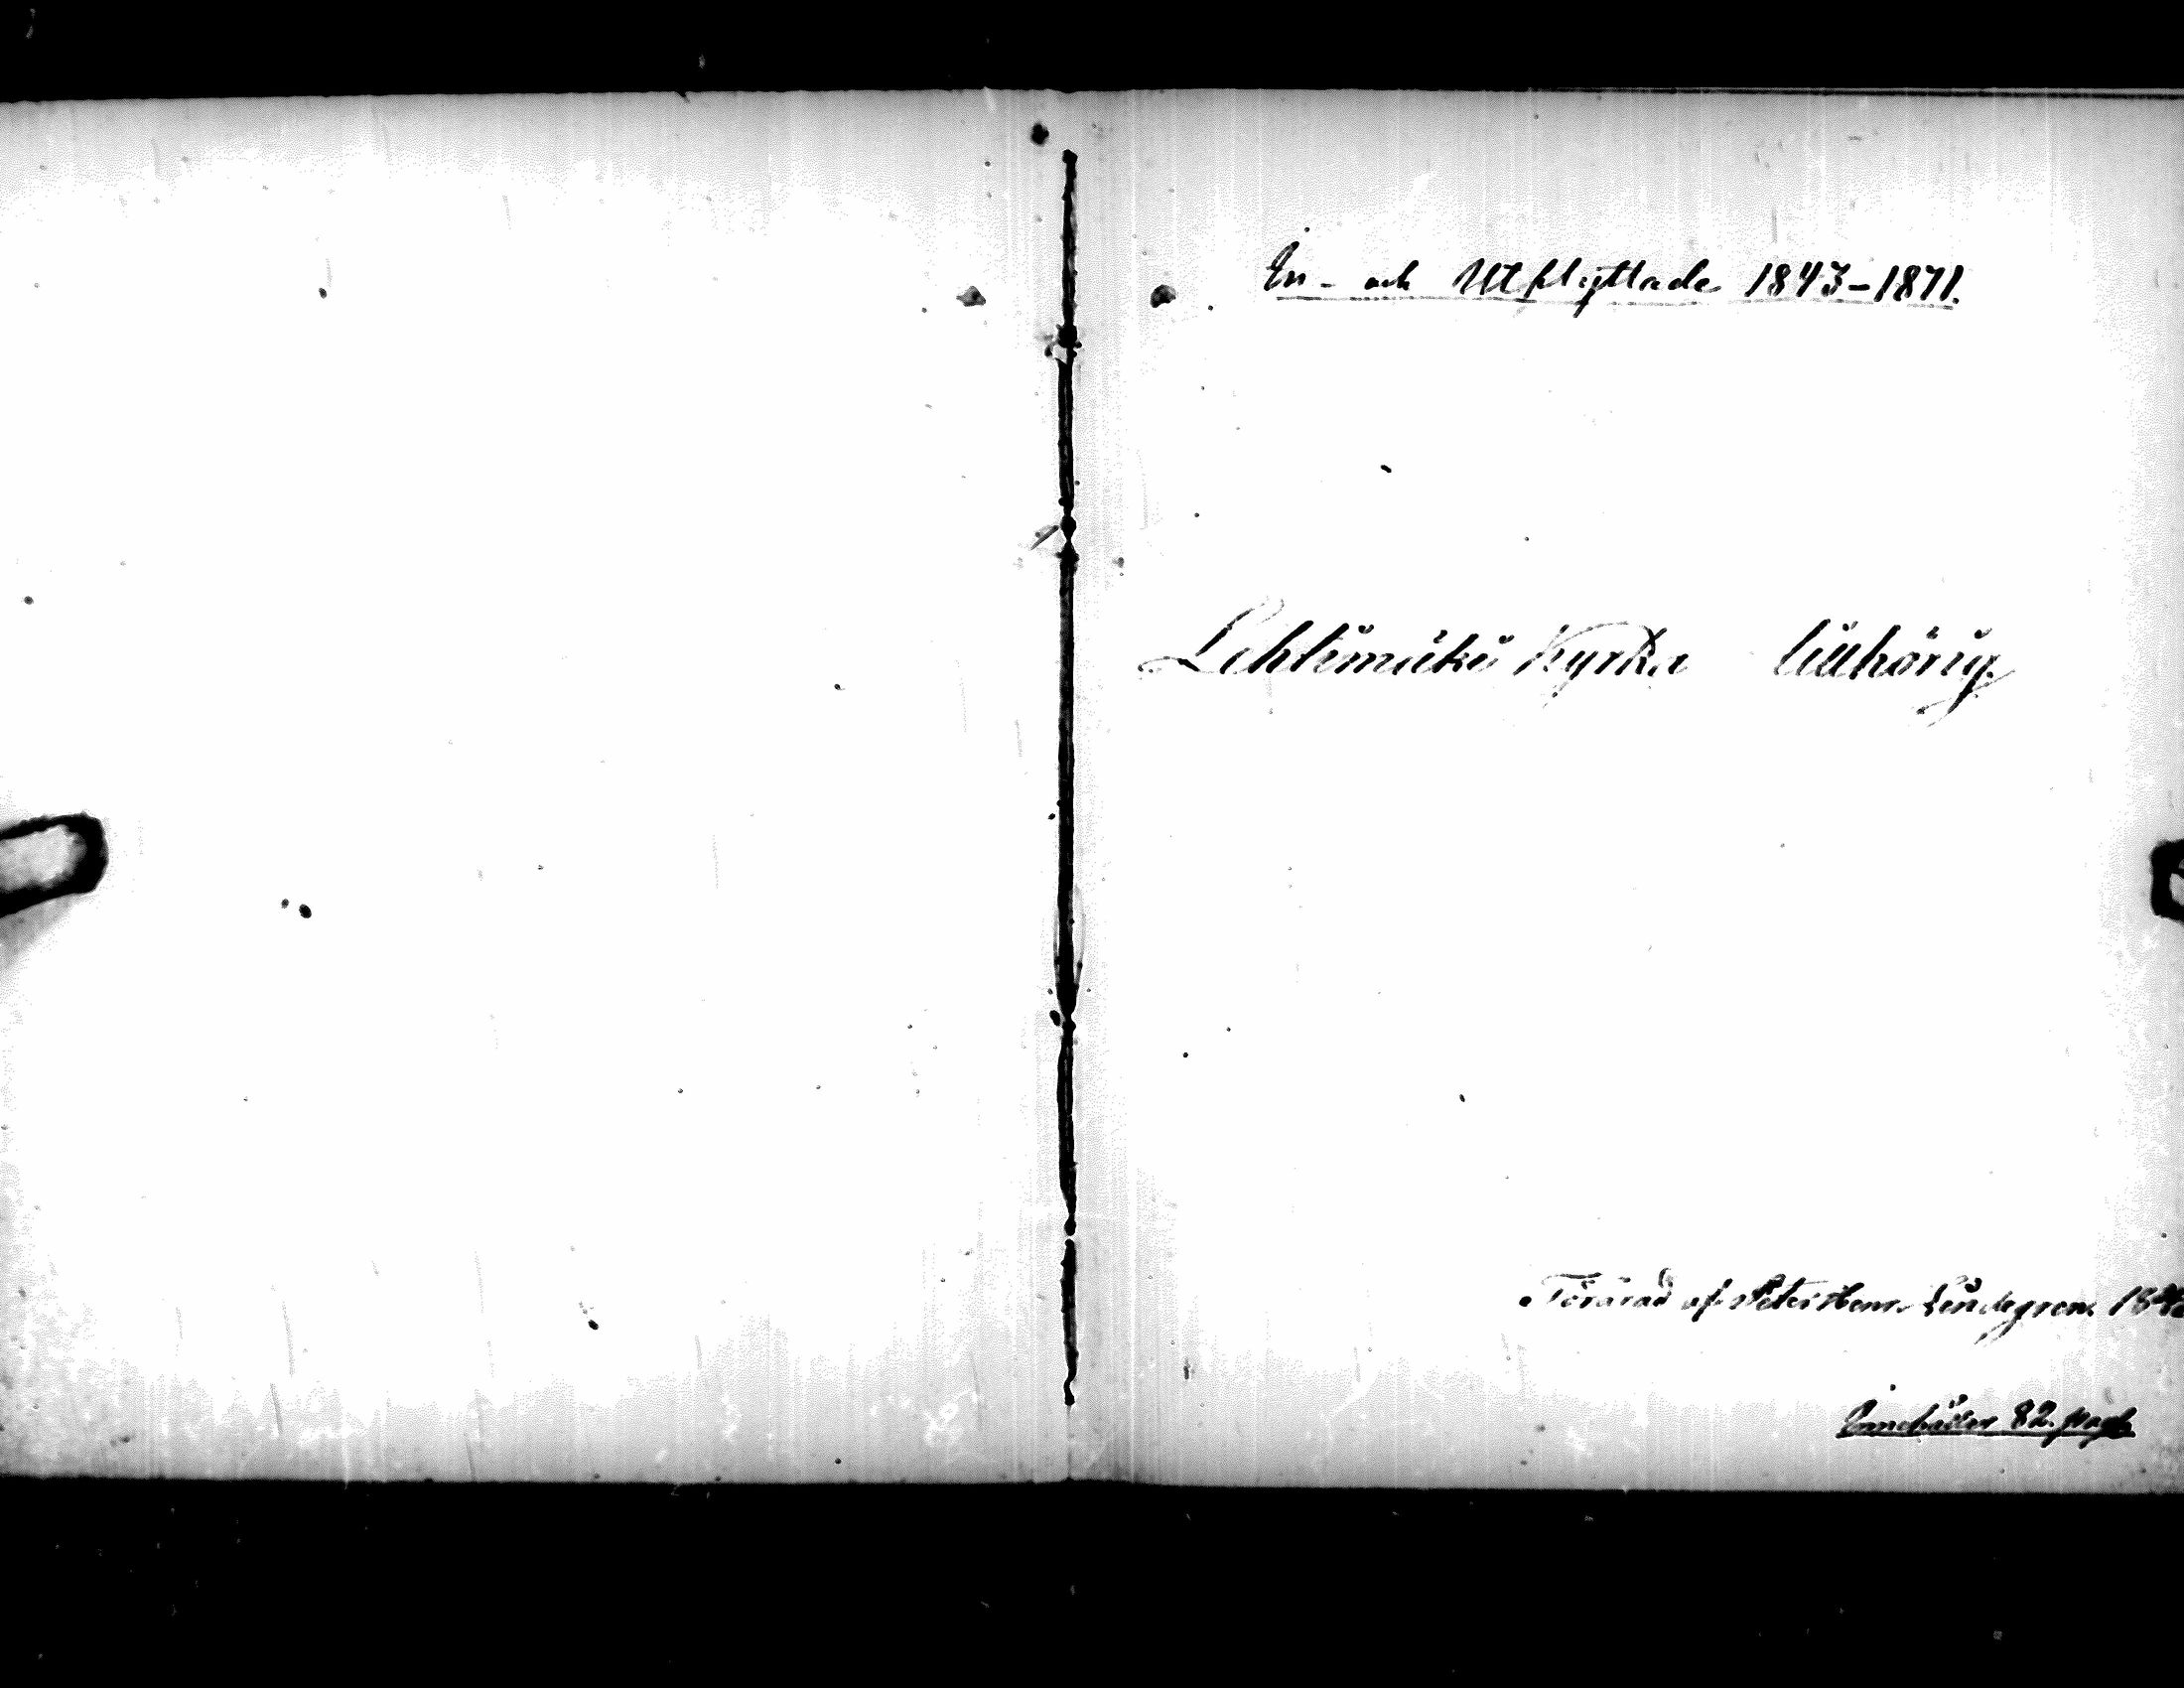 In- och Utflyttade 1843-1871.
Lehtimäki Kyrka tillhörig.
Förärad af Peter Henr. Lindegren
Innehåller 82. pag